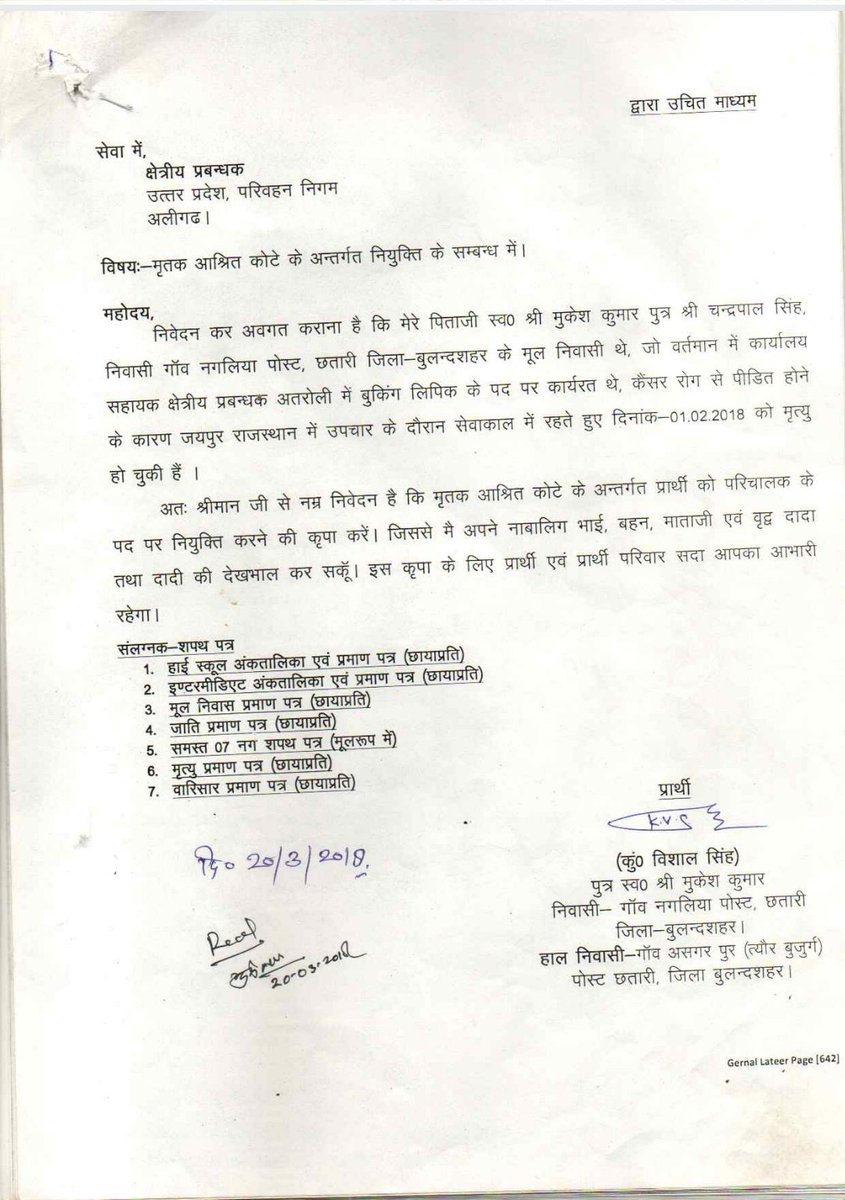 द्वारा उचित माध्यम
सेवा में,
क्षेत्रीय प्रबन्धक
उत्तर प्रदेश, परिवहन निगम
अलीगढ।
विषयः–मृतक आश्रित कोटे के अन्तर्गत नियुक्ति के सम्बन्ध में।
महोदय,
निवेदन कर अवगत कराना है कि मेरे पिताजी स्व0 श्री मुकेश कुमार पुत्र श्री चन्द्रपाल सिंह,
निवासी गॉव नगलिया पोस्ट, छतारी जिला–बुलन्दशहर के मूल निवासी थे, जो वर्तमान में कार्यालय
सहायक क्षेत्रीय प्रबन्धक अतरोली में बुकिंग लिपिक के पद पर कार्यरत थे, कैंसर रोग से पीडित होने
के कारण जयपुर राजस्थान में उपचार के दौरान सेवाकाल में रहते हुए दिनांक–01.02.2018 को मृत्यु
हो चुकी हैं ।
अतः श्रीमान जी से नम्र निवेदन है कि मृतक आश्रित कोटे के अन्तर्गत प्रार्थी को परिचालक के
पद पर नियुक्ति करने की कृपा करें। जिससे मै अपने नाबालिग भाई, बहन, माताजी एवं वृद्व दादा
तथा दादी की देखभाल कर सकूॅ। इस कृपा के लिए प्रार्थी एवं प्रार्थी परिवार सदा आपका आभारी
रहेगा।
संलग्नक–शपथ पत्र
1. हाई स्कूल अंकतालिका एवं प्रमाण पत्र (छायाप्रति)
2. इण्टरमीडिएट अंकतालिका एवं प्रमाण पत्र (छायाप्रति)
3. मूल निवास प्रमाण पत्र (छायाप्रति)
4. जाति प्रमाण पत्र (छायाप्रति)
5. समस्त 07 नग शपथ पत्र (मूलरूप में)
6. मृत्यु प्रमाण पत्र (छायाप्रति)
7. वारिसार प्रमाण पत्र (छायाप्रति)
प्रार्थी
K.V.S
(कुं0 विशाल सिंह)
पुत्र स्व0 श्री मुकेश कुमार
निवासी– गॉव नगलिया पोस्ट, छतारी
जिला–बुलन्दशहर।
हाल निवासी–गॉव असगर पुर (त्यौर बुजुर्ग)
पोस्ट छतारी, जिला बुलन्दशहर।
दि० 20/3/2018.
Recd
20-03-2018
Gernal Lateer Page [642]